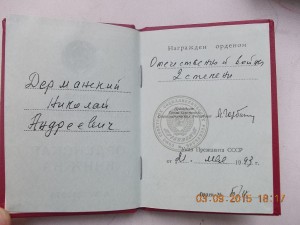 Дерманский
Николай
Андреевич
Награжден орденом
Отечественной войны
2 степени
Указ Президента СССР
от 21 мая 1993 г.
Б/н
03.09.2015 18:17